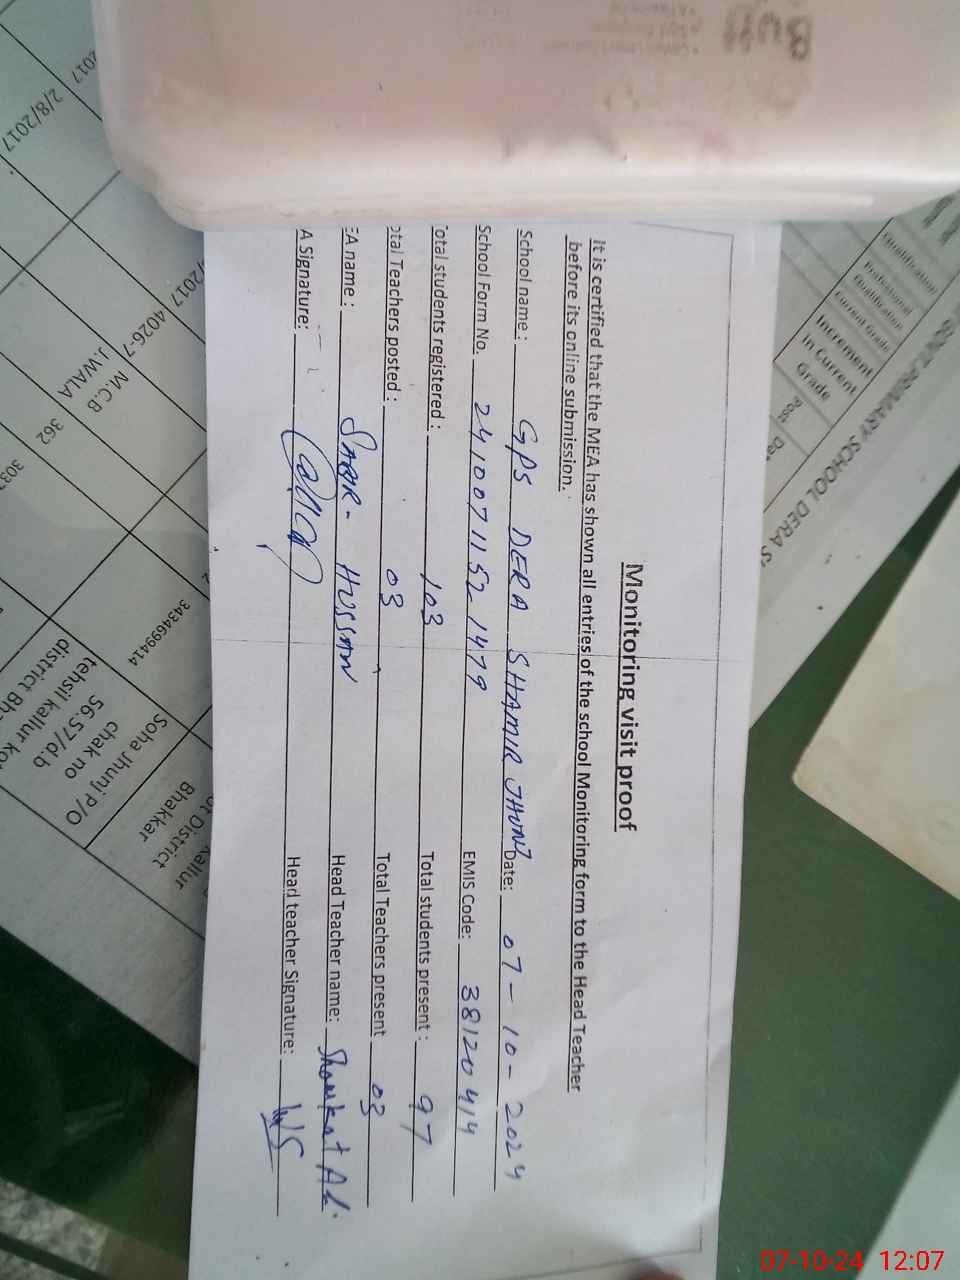 Monitoring visit proof
It is certified that the MEA has shown all entries of the school Monitoring form to the Head Teacher
before its online submission.
School name: GPS DERA SHAMIR JHUNJ Date: 07-10-2024
School Form No. 2410071152 1479 EMIS Code: 38120414
otal students registered: 103 Total students present: 97
otal Teachers posted: 03 Total Teachers present 03
EA name: SABR- HUSSAN Head Teacher name: Shoukat Al.
A Signature: Head teacher Signature:
2017
2/8/2017
/2017
4026-7
M.C.B
J.WALA
362
3037
3434699414
Soha Jhunj P/O
chak no
56.57/d.b
tehsil kallur ko
district Bha
kallur
ot District
Bhakkar
GOVT PRIMARY SCHOOL DERA S
Qualification
Professional
Qualification
Current Grade
Increment
in Current
Grade
Post
Da
07-10-24 12:07